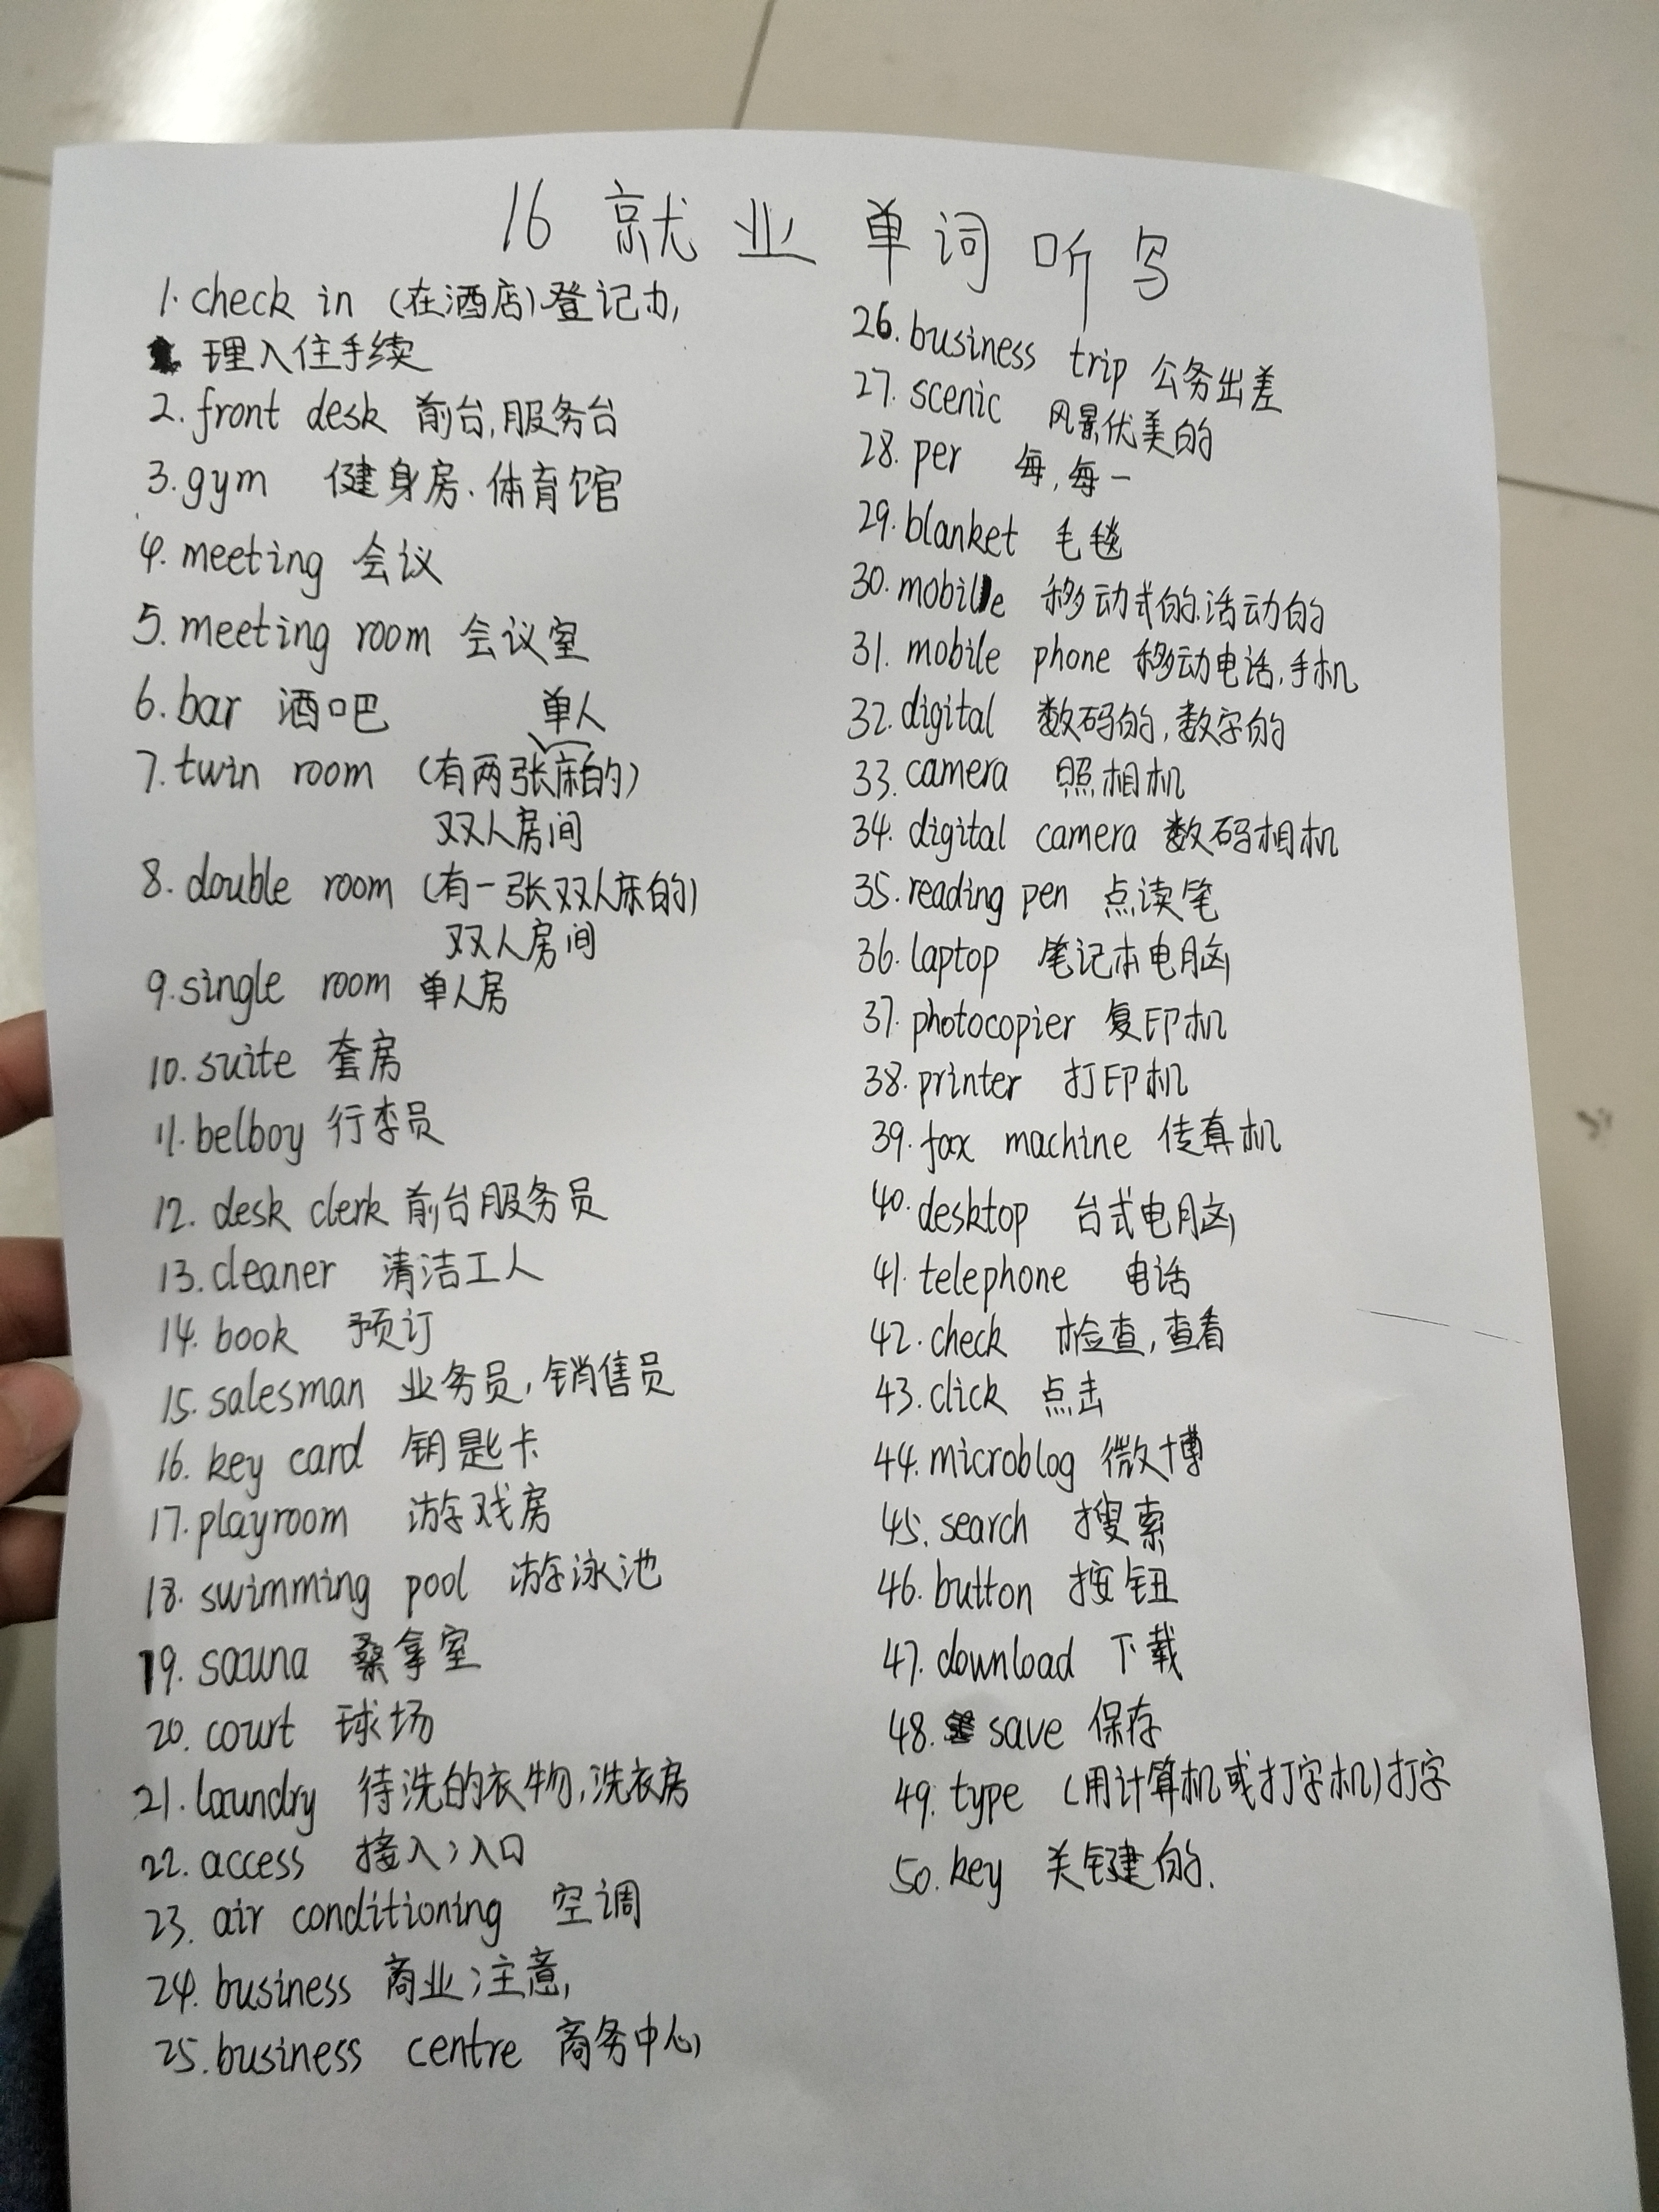 16 就业单词听写
1. check in (在酒店)登记办,
理入住手续
2. front desk 前台,服务台
3. gym 健身房.体育馆
4. meeting 会议
5. meeting room 会议室
6. bar 酒吧
单人
7. twin room (有两张床的)
双人房间
8. double room (有一张双人床的)
双人房间
9. single room 单人房
10. suite 套房
11. belboy 行李员
12. desk clerk 前台服务员
13. cleaner 清洁工人
14. book 预订
15. salesman 业务员,销售员
16. key card 钥匙卡
17. playroom 游戏房
18. swimming pool 游泳池
19. sauna 桑拿室
20. court 球场
21. laundry 待洗的衣物,洗衣房
22. access 接入;入口
23. air conditioning 空调
24. business 商业;注意,
25. business centre 商务中心
26. business trip 公务出差
27. scenic 风景优美的
28. per 每,每一
29. blanket 毛毯
30. mobile 移动式的.活动的
31. mobile phone 移动电话,手机
32. digital 数码的,数字的
33. camera 照相机
34. digital camera 数码相机
35. reading pen 点读笔
36. laptop 笔记本电脑
37. photocopier 复印机
38. printer 打印机
39. fax machine 传真机
40. desktop 台式电脑
41. telephone 电话
42. check 检查,查看
43. click 点击
44. microblog 微博
45. search 搜索
46. button 按钮
47. download 下载
48. save 保存
49. type (用计算机或打字机)打字
50. key 关键的.